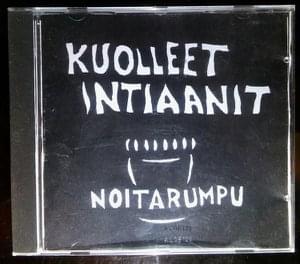 KUOLLEET
INTIAANIT
NOITARUMPU